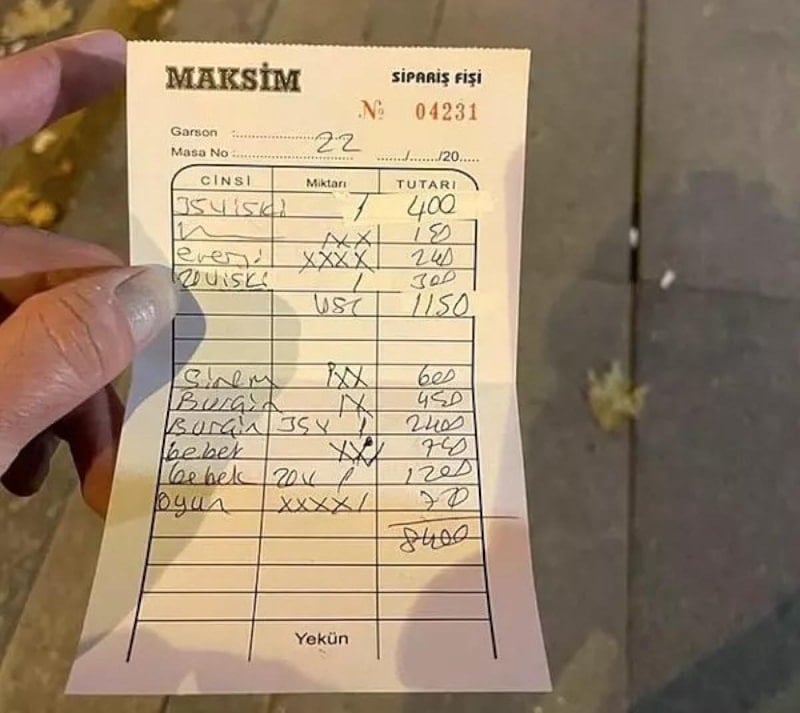 MAKSİM
SİPARİŞ FİŞİ
№ 04231
Garson :
Masa No : 22 ....../....../20.....
CİNSİ Miktarı TUTARI
35viski 1 400
XX 150
enerji XXXX 240
20viski 1 300
1150
Sinem XX 600
Burçin 450
Burçin 35v 1 2400
bebek 750
bebek 20v 1 1200
Oyun XXXX1
8400
Yekün